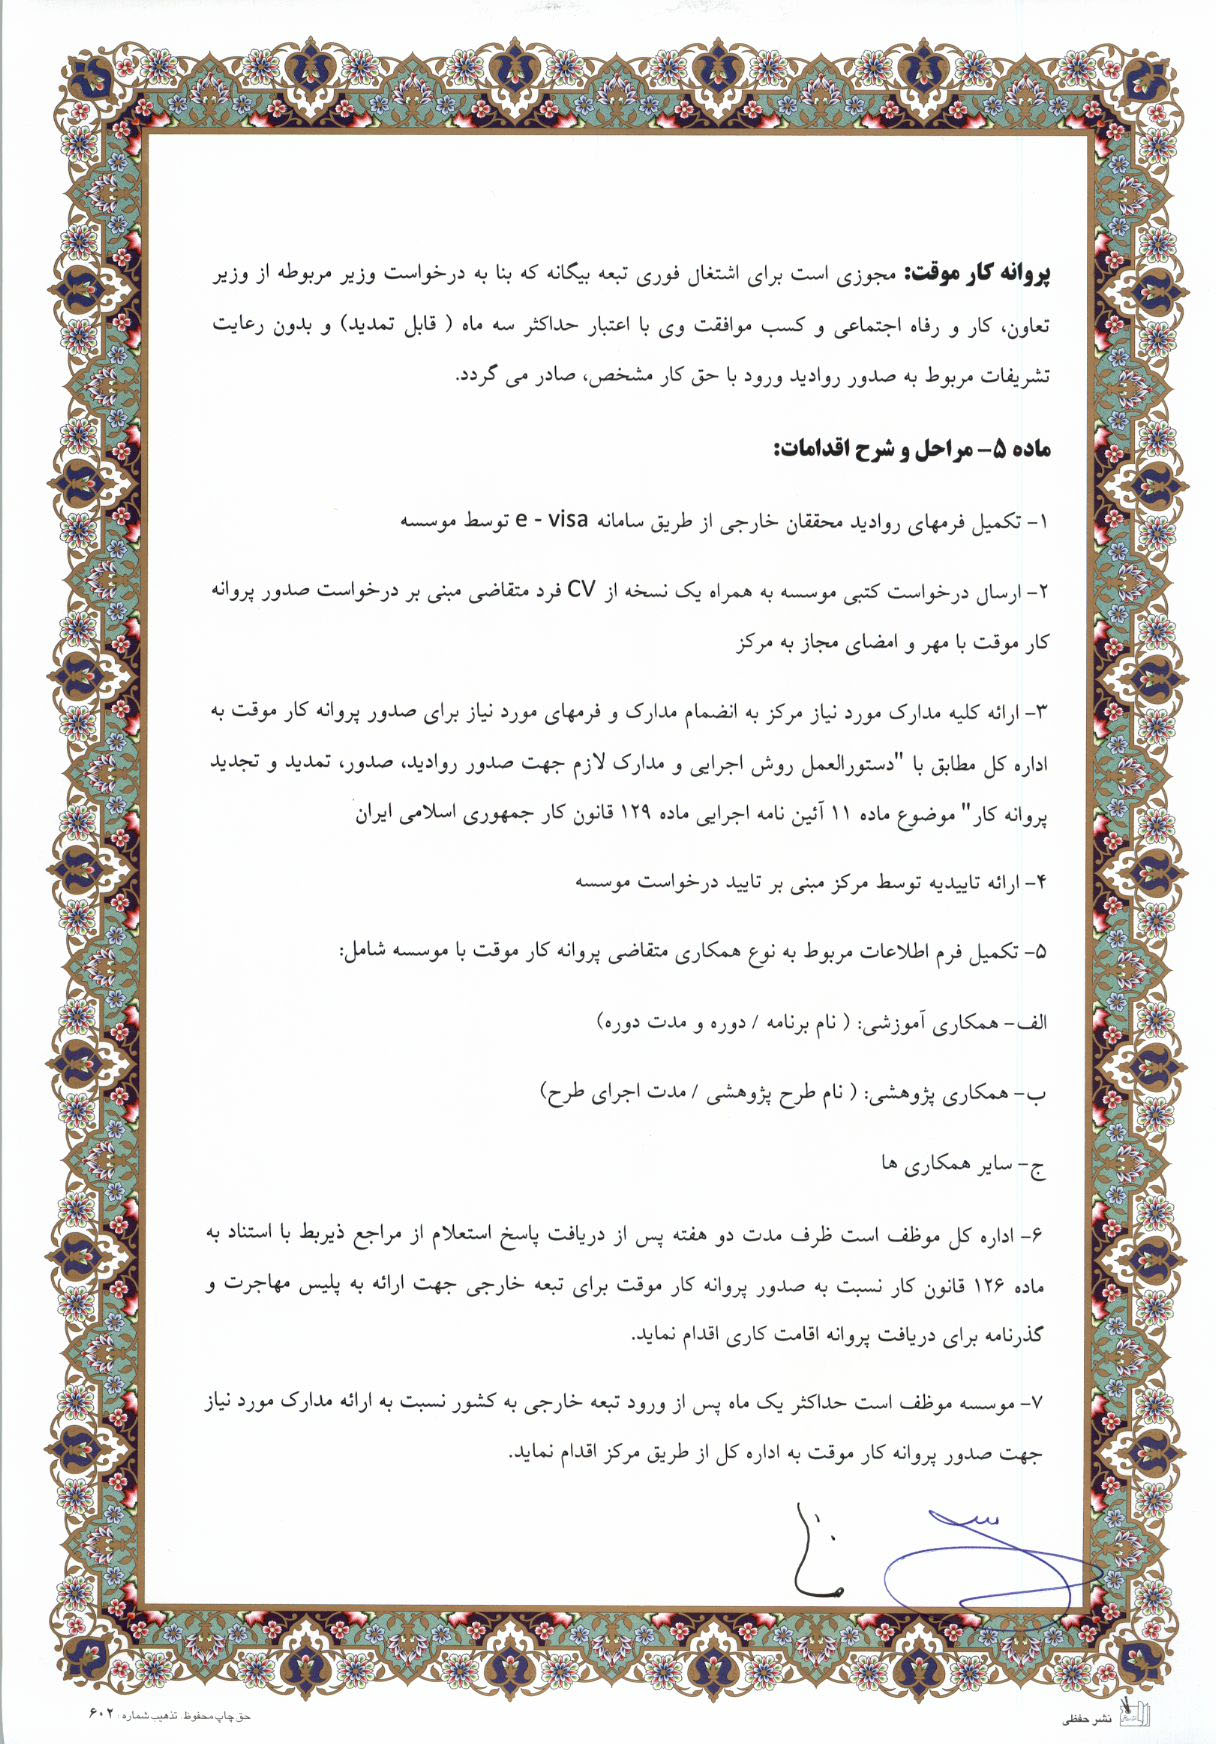 پروانه کار موقت: مجوزی است برای اشتغال فوری تبعه بیگانه که بنا به درخواست وزیر مربوطه از وزیر
تعاون، کار و رفاه اجتماعی و کسب موافقت وی با اعتبار حداکثر سه ماه ( قابل تمدید) و بدون رعایت
تشریفات مربوط به صدور روادید ورود با حق کار مشخص، صادر می گردد.
ماده ۵- مراحل و شرح اقدامات:
۱- تکمیل فرمهای روادید محققان خارجی از طریق سامانه e - visa توسط موسسه
۲- ارسال درخواست کتبی موسسه به همراه یک نسخه از CV فرد متقاضی مبنی بر درخواست صدور پروانه
کار موقت با مهر و امضای مجاز به مرکز
۳- ارائه کلیه مدارک مورد نیاز مرکز به انضمام مدارک و فرمهای مورد نیاز برای صدور پروانه کار موقت به
اداره کل مطابق با "دستورالعمل روش اجرایی و مدارک لازم جهت صدور روادید، صدور، تمدید و تجدید
پروانه کار" موضوع ماده ۱۱ آئین نامه اجرایی ماده ۱۲۹ قانون کار جمهوری اسلامی ایران
۴- ارائه تاییدیه توسط مرکز مبنی بر تایید درخواست موسسه
۵- تکمیل فرم اطلاعات مربوط به نوع همکاری متقاضی پروانه کار موقت با موسسه شامل:
الف- همکاری آموزشی: ( نام برنامه / دوره و مدت دوره)
ب- همکاری پژوهشی: ( نام طرح پژوهشی / مدت اجرای طرح)
ج- سایر همکاری ها
۶- اداره کل موظف است ظرف مدت دو هفته پس از دریافت پاسخ استعلام از مراجع ذیربط با استناد به
ماده ۱۲۶ قانون کار نسبت به صدور پروانه کار موقت برای تبعه خارجی جهت ارائه به پلیس مهاجرت و
گذرنامه برای دریافت پروانه اقامت کاری اقدام نماید.
۷- موسسه موظف است حداکثر یک ماه پس از ورود تبعه خارجی به کشور نسبت به ارائه مدارک مورد نیاز
جهت صدور پروانه کار موقت به اداره کل از طریق مرکز اقدام نماید.
نشر حفظی
حق چاپ محفوظ تذهیب شماره : ۶۰۲